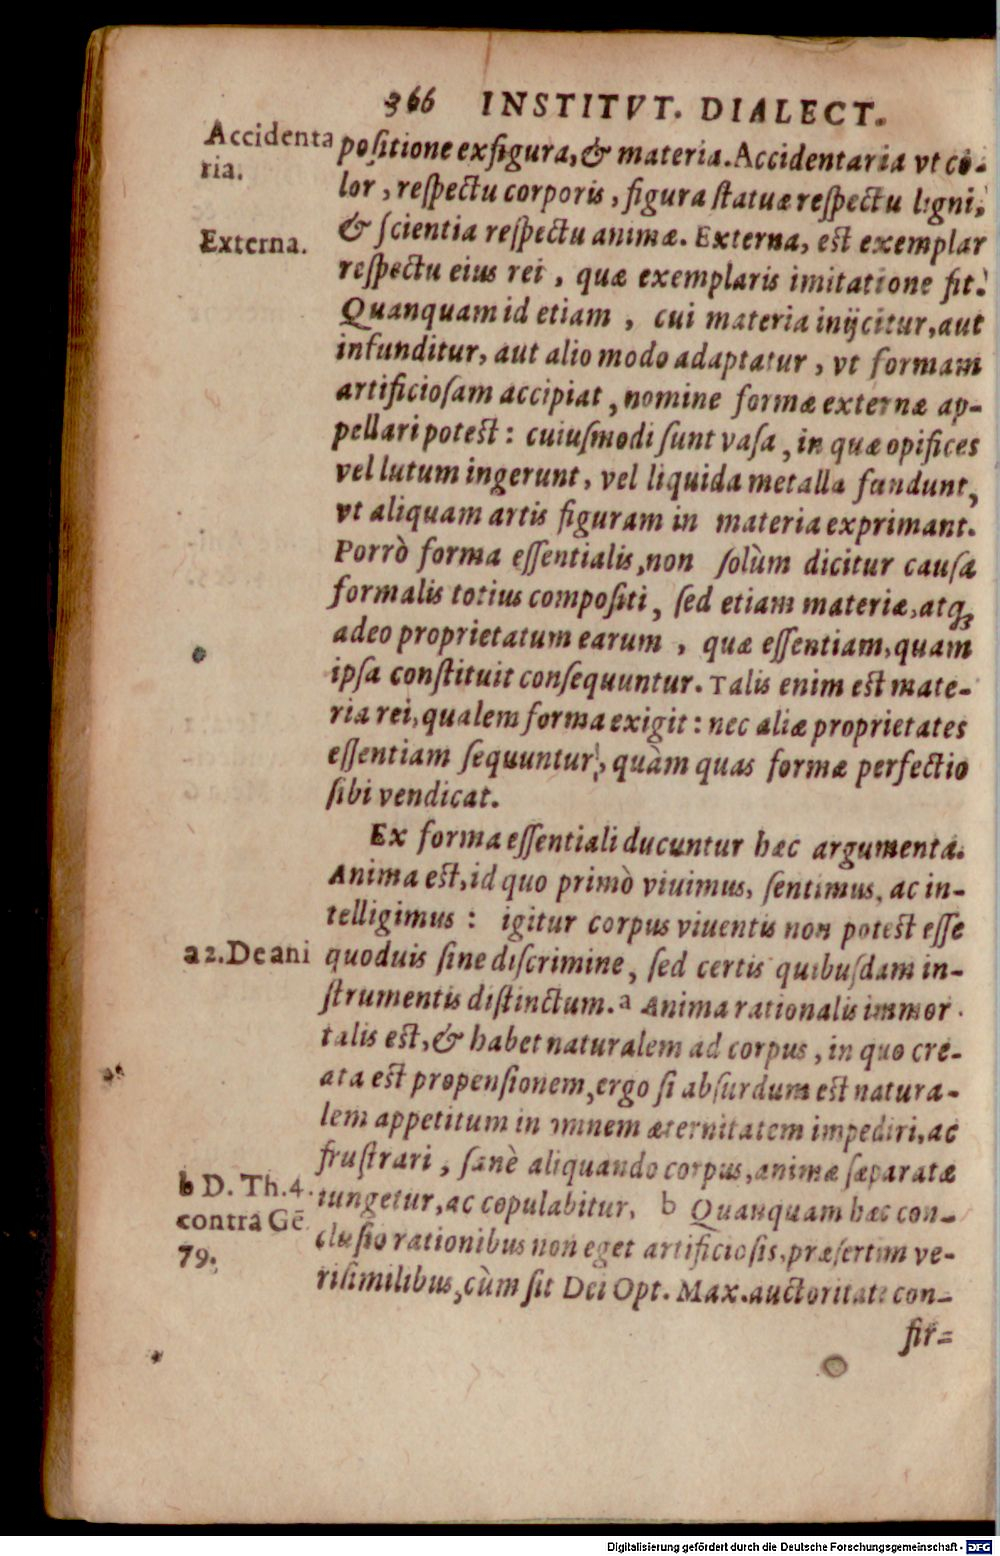 366 INSTITVT. DIALECT.
Accidenta
ria.
Externa.
positione ex figura, & materia. Accidentaria vt co-
lor, respectu corporis, figura statuæ respectu ligni,
& scientia respectu animæ. Externa, est exemplar
respectu eius rei, quæ exemplaris imitatione fit.
Quanquam id etiam, cui materia inijcitur, aut
infunditur, aut alio modo adaptatur, vt formam
artificiosam accipiat, nomine formæ externæ ap-
pellari potest: cuiusmodi sunt vasa, in quæ opifices
vel lutum ingerunt, vel liquida metalla fundunt,
vt aliquam artis figuram in materia exprimant.
Porrò forma essentialis, non solùm dicitur causa
formalis totius compositi, sed etiam materiæ, atq;
adeo proprietatum earum, quæ essentiam, quam
ipsa constituit consequuntur. Talis enim est mate-
ria rei, qualem forma exigit: nec aliæ proprietates
essentiam sequuntur, quàm quas formæ perfectio
sibi vendicat.
Ex forma essentiali ducuntur hæc argumenta.
Anima est, id quo primò viuimus, sentimus, ac in-
telligimus: igitur corpus viuentis non potest esse
a 2. De ani
quoduis sine discrimine, sed certis quibusdam in-
strumentis distinctum. a Anima rationalis immor-
talis est, & habet naturalem ad corpus, in quo cre-
ata est propensionem, ergo si absurdum est natura-
lem appetitum in omnem æternitatem impediri, ac
frustrari, sanè aliquando corpus, animæ sæparatæ
b D. Th. 4.
contra Gē.
79.
iungetur, ac copulabitur, b Quanquam hæc con-
clusio rationibus non eget artificiosis, præsertim ve-
risimilibus, cùm sit Dei Opt. Max. auctoritate con-
fir-
Digitalisierung gefördert durch die Deutsche Forschungsgemeinschaft - DFG